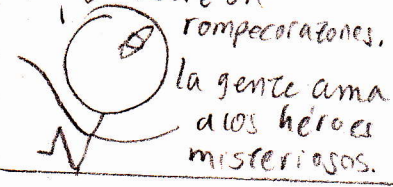 rompecorazones.
la gente ama
a los héroes
misteriosos.